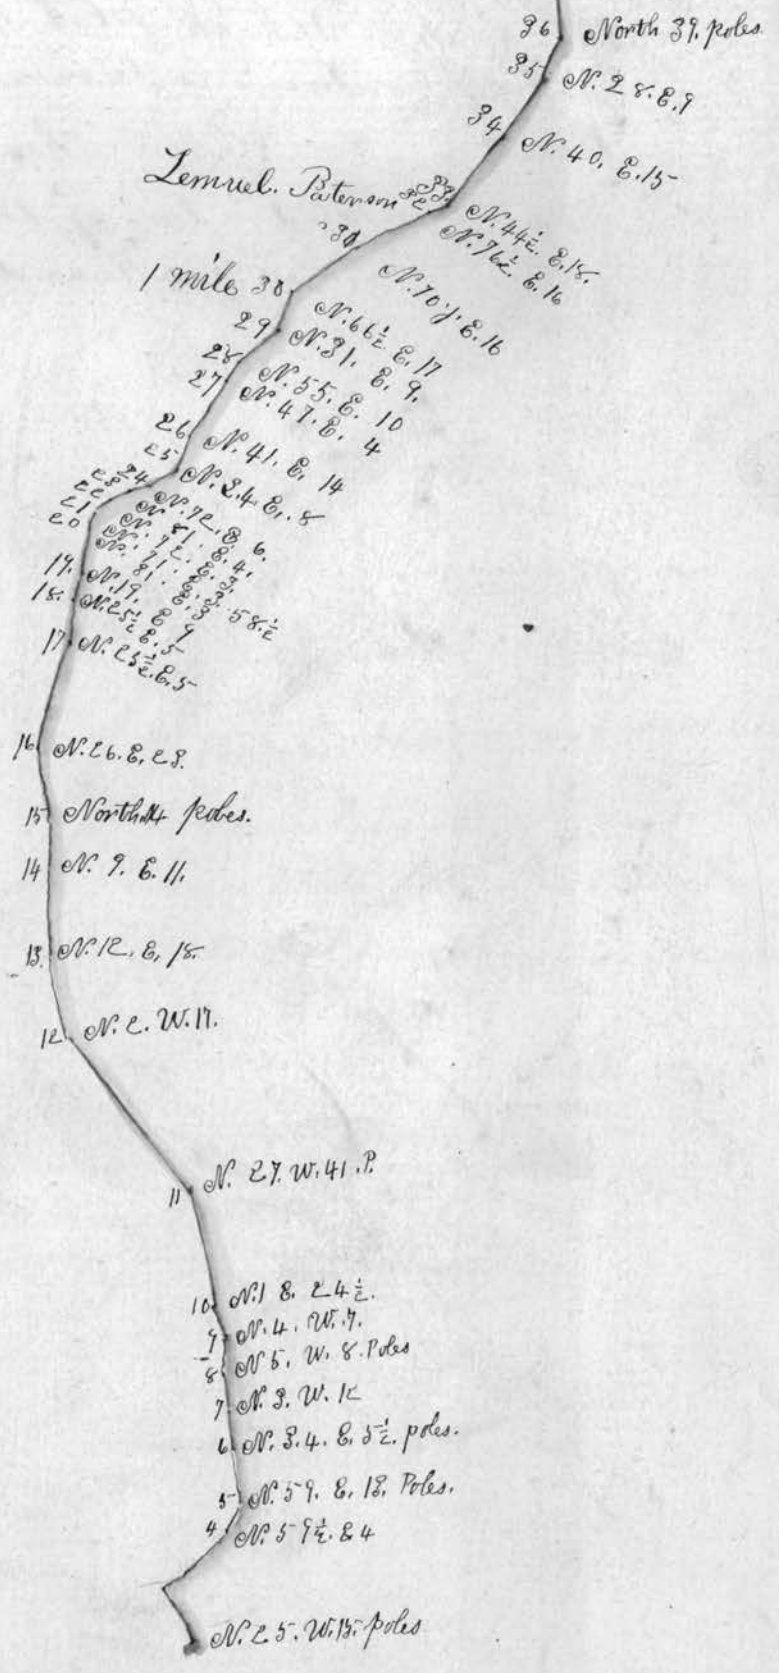 36 North 39. poles.
35 N. 28. E. 9
34 N. 40. E. 15
Lemuel. Paterson
33 N. 44½. E. 18.
32 N. 76½. E. 16
30 N. 70. E. 16
1 mile 30 N. 66½ E. 17
29 N. 31. E. 9.
28 N. 55. E. 10
27 N. 47. E. 4
26 N. 41. E. 14
25 N. 24. E. 8
24 N. 72. E. 6.
23 N. 81. E. 4.
22 N. 72. E. 3.
21 N. 71. E. 3.
20 N. 81. E. 3 58½
19. N. 19. E. 9
18. N. 25½ E. 5
17 N. 25½. E. 5
16 N. 26. E. 23.
15 North 14 poles.
14 N. 9. E. 11.
13. N. 12. E. 18.
12 N. 2. W. 17.
11 N. 27. W. 41. P.
10 N. 1 E. 24½.
9 N. 4. W. 7.
8 N 5. W. 8. Poles
7 N. 3. W. 12
6 N. 34. E. 5½. poles.
5 N. 59. E. 13. Poles.
4 N. 59½. E 4
N. 25. W. 15. poles